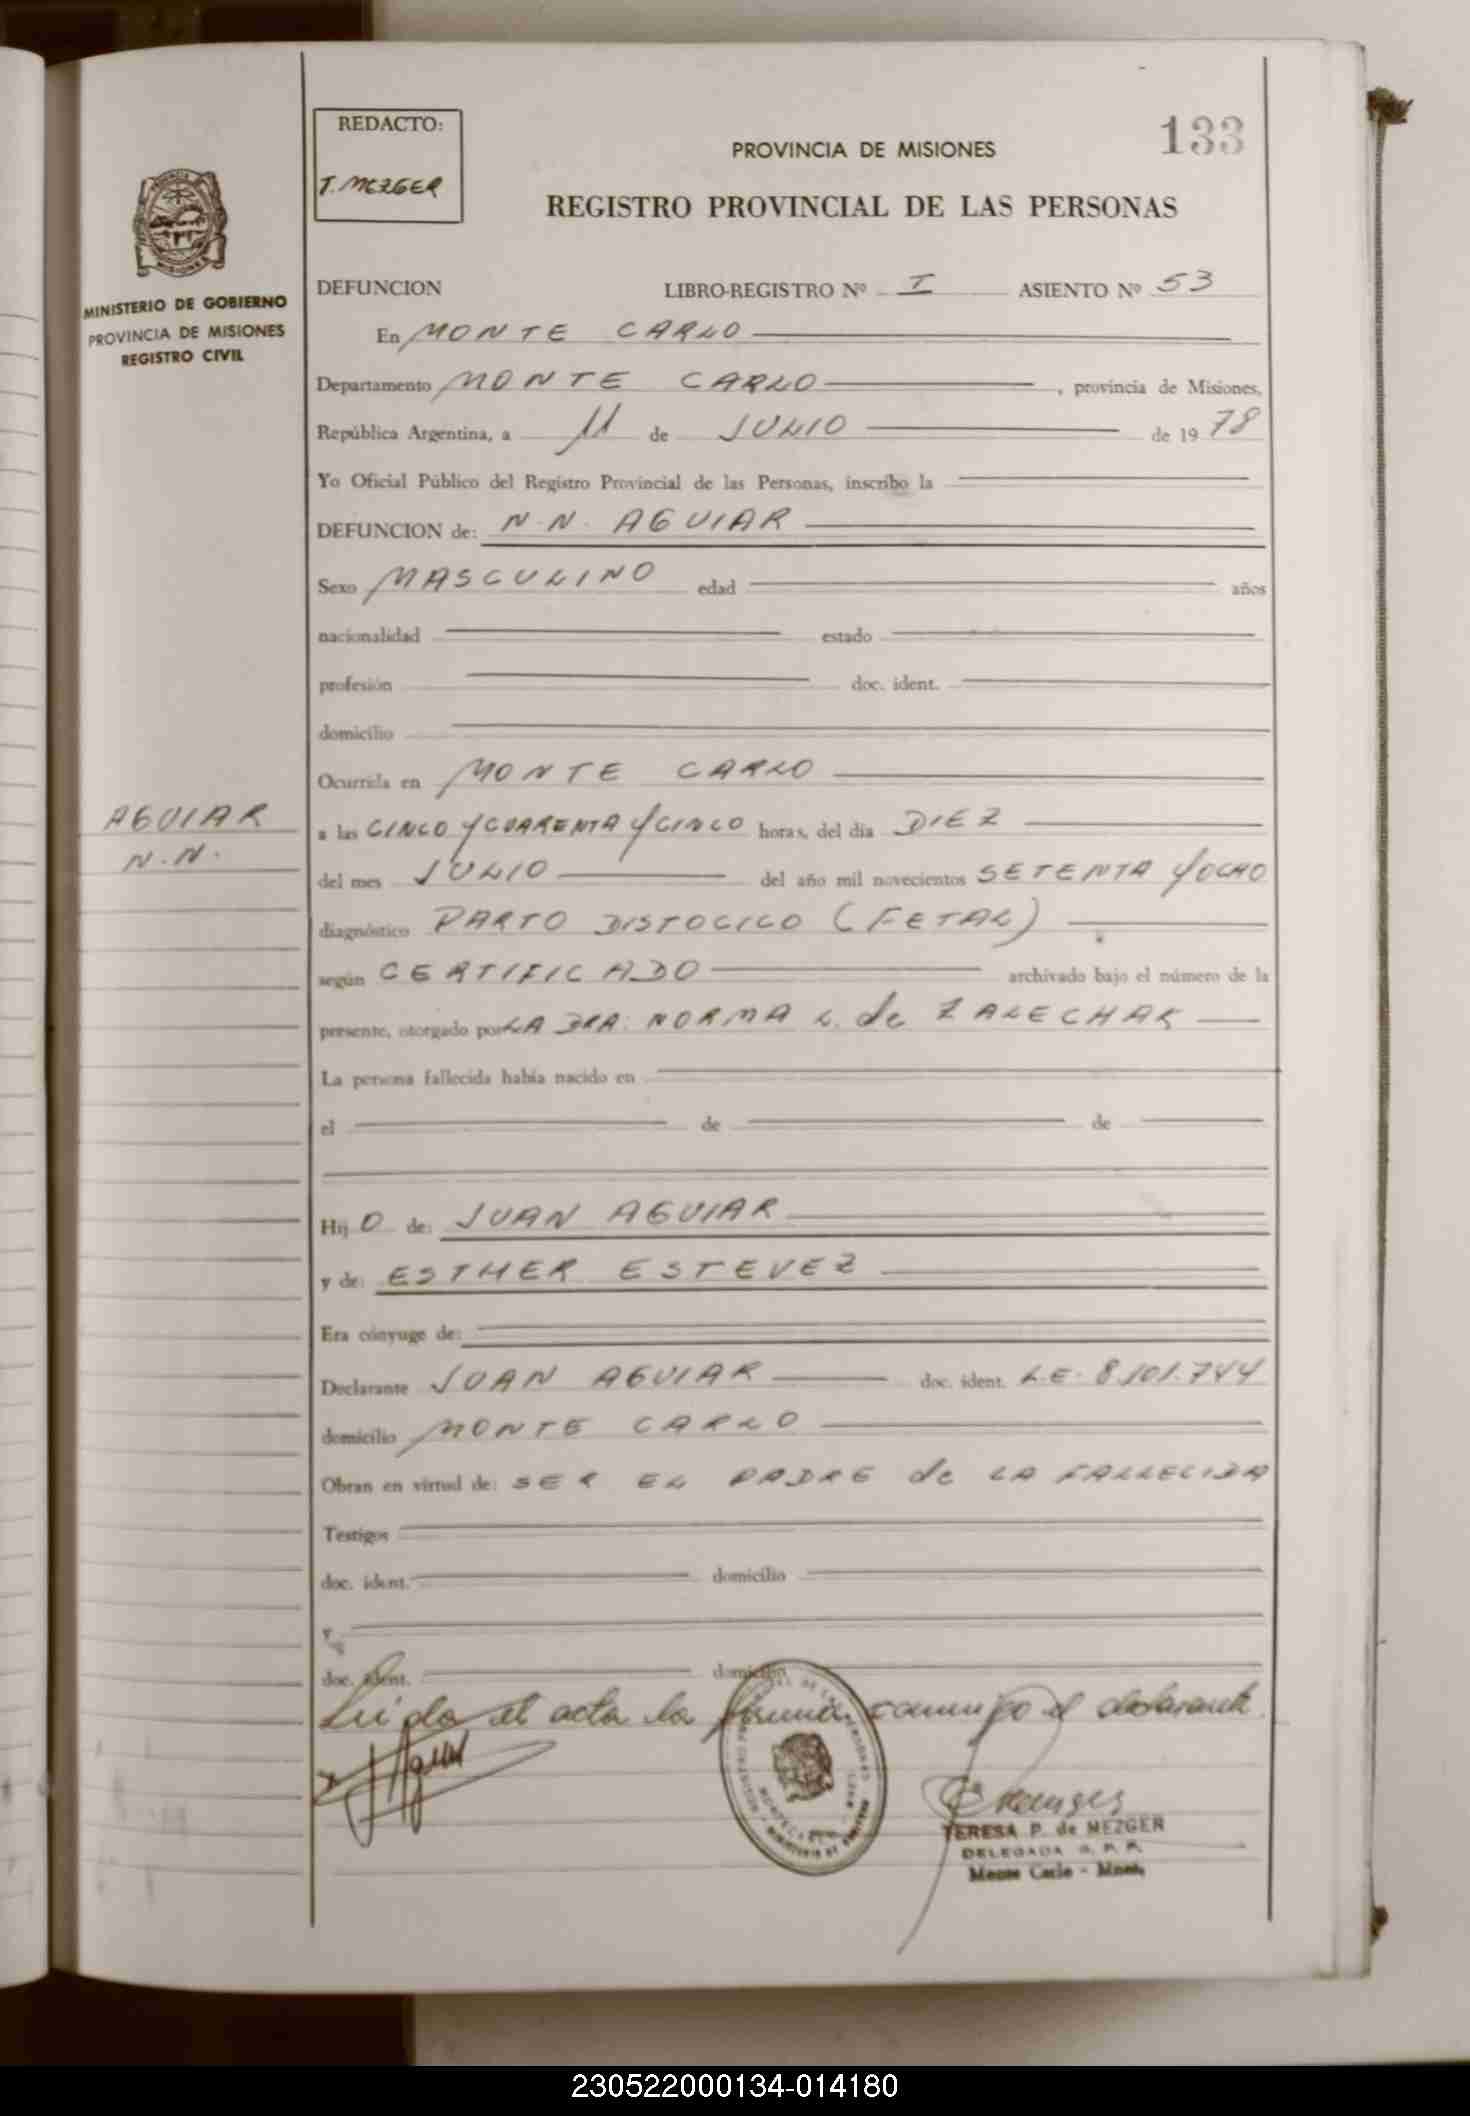 REDACTO:
T. MEZGER
PROVINCIA DE MISIONES
133
REGISTRO PROVINCIAL DE LAS PERSONAS
MINISTERIO DE GOBIERNO
PROVINCIA DE MISIONES
REGISTRO CIVIL
DEFUNCION LIBRO-REGISTRO Nº I ASIENTO Nº 53
En MONTE CARLO
Departamento MONTE CARLO, provincia de Misiones,
República Argentina, a 11 de JULIO de 1978
Yo Oficial Público del Registro Provincial de las Personas, inscribo la
DEFUNCION de: N.N. AGUIAR
Sexo MASCULINO edad años
nacionalidad estado
profesión doc. ident.
domicilio
Ocurrida en MONTE CARLO
AGUIAR
N.N.
a las CINCO Y CUARENTA Y CINCO horas, del día DIEZ
del mes JULIO del año mil novecientos SETENTA Y OCHO
diagnóstico PARTO DISTOCICO (FETAL)
según CERTIFICADO archivado bajo el número de la
presente, otorgado por LA DRA: NORMA L. de ZALECHAK
La persona fallecida había nacido en
el de de
Hij O de: JUAN AGUIAR
y de: ESTHER ESTEVEZ
Era cónyuge de:
Declarante JUAN AGUIAR doc. ident. L.E. 8.101.744
domicilio MONTE CARLO
Obran en virtud de: SER EL PADRE de LA FALLECIDA
Testigos
doc. ident. domicilio
y
doc. ident. domicilio
Leida el acta la firma conmigo el declarante
TERESA P. de MEZGER
DELEGADA R. P. P.
Monte Carlo - Mnes.
230522000134-014180